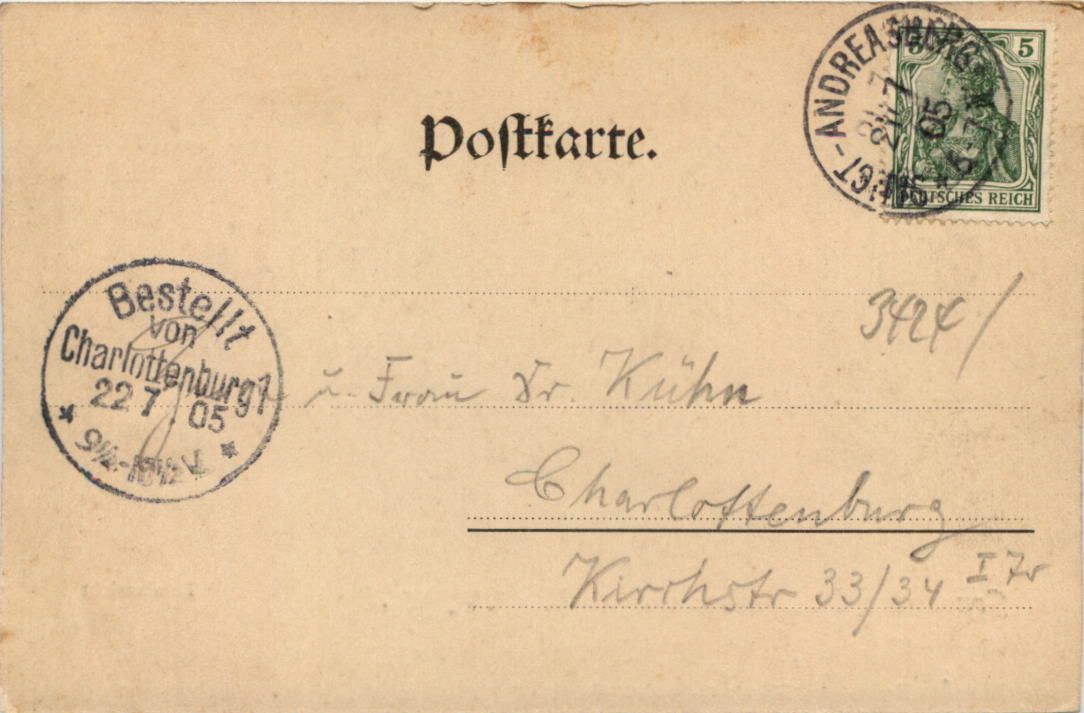 SANCT-ANDREASBERG
21 7
05
5
DEUTSCHES REICH
Postkarte.
3424/
Bestellt
von
Charlottenburg 1
22 7. 05
9½-10½ V.
u. Frau Dr. Kühn
Charlottenburg
Kirchstr 33/34 I